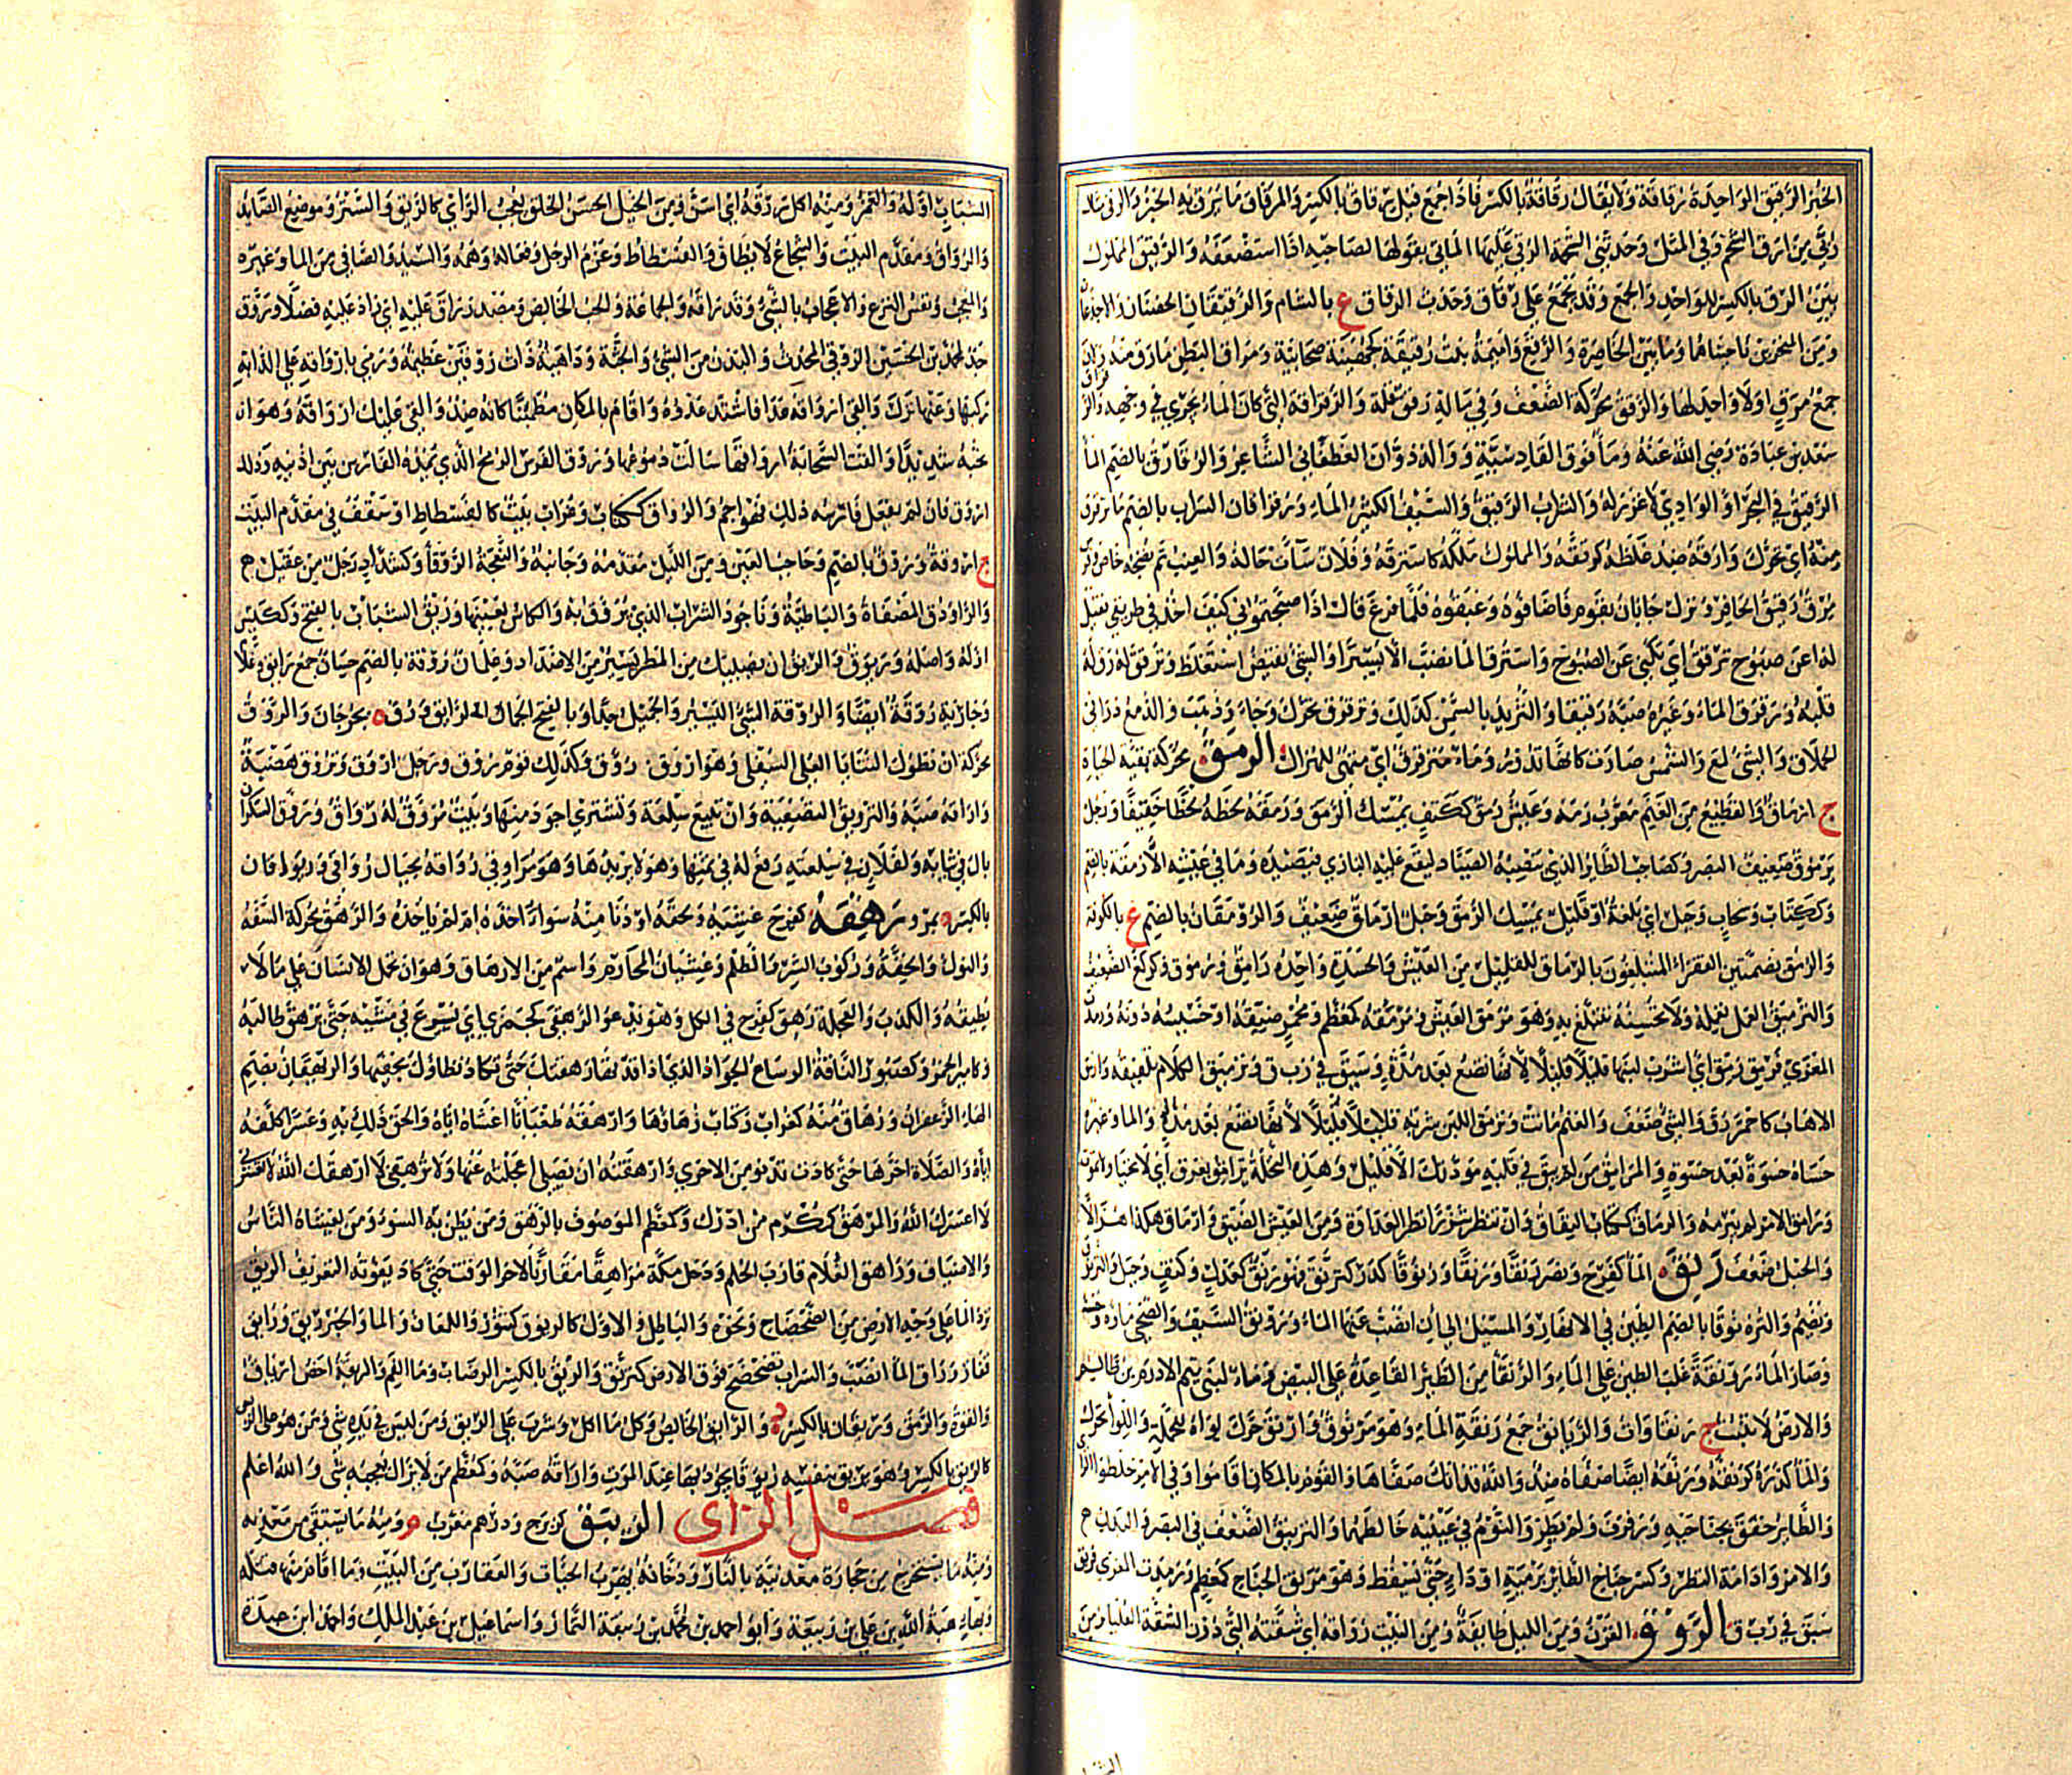 الخبز الرقيق الواحدة رقاقة ولا يقال رقاقة بالكسر فاذا جمع قيل رقاق بالكسر والمرقاق ما يرق به الخبز والرقى
ارق الشحم وفي المثل وجدتني الشحمة الرقى عليها الماتى يقولها لصاحبه اذا استضعفه والرقيق المملوك
بين الرق بالكسر للواحد والجمع وقد يجمع على رقاق وحدث الرقاق ع بالشام والرقيقان الحضنان والاخدعان
ومن النخرين ناحيتاهما وما بين الخاصرة والرفغ واميمة بنت رقيقة كجهينة صحابية ومراق البطن مارق منه
جمع مرق اولا واحد لها والرقق محركة الضعف وفي ماله رقق قلة والرقراقة التي كان الماء يجري في وجهها
سعد بن عبادة رضي الله عنه وماء فوق القادسية ووالد ذواد الغطفاني الشاعر والرقارق بالضم الماء
الرقيق في البحر او الوادي لا غزر له والشراب الرقيق والسيف الكثير الماء ورقراقان السراب بالضم ما ترقرق
منه اي تحرك وارقه ضد غلظه كرققه والمملوك ملكه كاسترقه وفلان ساءت حاله والعنب تم نضجه
يرق رقيق الحافر ونزل جابان بقوم فاضافوه وغبقوه فلما فرغ قال اذا صبحتموني كيف اخذ في طريقي فقيل
له اعن صبوح ترقق اي تكني عن الصبوح واسترق الماء نضب الا يسيرا والشيء نقيض استغلظ وترقق له رق له
قلبه ورقرق الماء وغيره صبه رقيقا والثريد بالسمن كذلك وترقرق تحرك وجاء وذهب والدمع دار في
الحملاق والشيء لمع والشمس صارت كانها تدور وماء مترقرق اي متهيئ للمراك الرمق محركة بقية الحياة
ج ارماق والقطيع من الغنم معرب رمه وعيش رمق ككتف يمسك الرمق ورمقه لحظه لحظا خفيفا ورجل
يرموق ضعيف البصر وكصاحب الطائر الذي ينصبه الصياد ليقع عليه البازي فيصيده وما في عيشه الا رمقة بالضم
وككتاب وسحاب وجبل اي بلغة او قليل يمسك الرمق وحبل ارماق ضعيف والرومقان بالضم ع بالكوفة
والرمق بضمتين الفقراء المتبلغون بالرماق للقليل من العيش والحسدة واحده رامق ورموق وكركع الضعيف
والترميق العمل يعمله ولا يحسنه يتبلغ به وهو مرمق العيش ومرمقه كمعظم ومحمر ضيقه او خسيسه دونه
المعزي فرنق رنق اي اشرب لبنها قليلا قليلا لانها تضع بعد مدة وسبق في ربق وترميق الكلام تلفيقه وارمق
الاهاب كاحمر رق والشيء ضعف والغنم ماتت وترمق اللبن شربه قليلا قليلا لانها تضع بعد مدة والماء وغيره
حساه حسوة بعد حسوة والمرامق من لم يبق في قلبه مودتك الا قليل وهذه النخلة ترامق بعرق اي لا تحيا ولا تموت
ورامق الامر لم يبرمه والرماق ككتاب النفاق وان تنظر شزرا نظر العداوة ومن العيش الضيق وارماق هكذا هزالا
والحبل ضعف رنق الماء كفرح ونصر رنقا ورنقا ورنوقا كدر كترنق فهو رنق كعدل وكتف وجبل والترنق
ويضم والترنوقا بالضم الطين في الانهار والمسيل اذا نضب عنها الماء ورونق السيف والضحى ماؤه وحسنه
وصار الماء رونقة غلب الطين على الماء والرنقاء من الطير القاعدة على البيض وماء لبني تيم الادرم بن ظالم
والارض لا تنبت ج رنقاوات والريانق جمع رنقة الماء وهو مرنوق وارنق حرك لواءه للحملة واللواء تحرك
والماء كدره كرنقه ورنقه ايضا صفاه ضد والله قذاتك صفاها والقوم بالمكان اقاموا وفي الامر خلطوا الراي
والطائر خفق بجناحيه ورفرف ولم يطر والنوم في عينيه خالطهما والترنيق الضعف في البصر والبدن
والامر وادامة النظر وكسر جناح الطائر برمية او داء حتى يسقط وهو مرنق الجناح كمعظم ورمدت المعزي فرنق
سبق في ربق الروق القرن ومن الليل طائفة ومن البيت رواقه اي شقته التي دون الشقة العليا ومن
الشباب اوله والعمر ومنه اكل روقه اي اسن ومن الخيل الحسن الخلق يعجب الرائي كالريق والستر وموضع الصائد
والرواق ومقدم البيت والشجاع لا يطاق والفسطاط وعزم الرجل وفعاله وهمه والسيد والصافي من الماء وغيره
والعجب ونفس النزع والاعجاب بالشيء وقد راقه والجماعة والحب الخالص ومصدر راق عليه اي زاد عليه فضلا وروق
جد لمحمد بن الحسين الروقي المحدث والبدن من الشيء والجثة وداهية ذات روقين عظيمة ورمي بارواقه على الدابة
ركبها وعنها نزل والقى ارواقه عدا فاشتد عدوه واقام بالمكان مطمئنا كانه ضد والقى عليك ارواقه وهو ان
تحبه شديدا والقت السحابة ارواقها سالت دموعها وروق الفرس الرمح الذي يمده الفارس بين اذنيه وذلك
اروق فان لم يفعل فارسه ذلك فهو اجم والرواق ككتاب وغراب بيت كالفسطاط او سقف في مقدم البيت
ج اروقة وروق بالضم وحاجب العين ومن الليل مقدمه وجانبه والنعجة الروقاء وكشداد رجل من عقيل
والراووق المصفاة والباطية وناجود الشراب الذي يروق به والكاس بعينها وريق الشباب بالفتح وككيس
اوله واصله وريوق والريق ان يصيبك من المطر يسير من الاضداد وغلمان روقة بالضم حسان جمع رائق وغلام
وجارية روقة ايضا والروقة الشيء اليسير والجميل جدا وبالفتح الجمال الرائق وروق ه بجرجان والروق
محركة ان تطول الثنايا العليا السفلى وهو اروق روق وكذلك قوم روق ورجل اروق وتروق هضبة
واراقه صبه والترويق التصفية وان تبيع سلعة وتشتري اجود منها وبيت مروق له رواق وروق السكران
بال في ثيابه ولفلان في سلعته رفع له في ثمنها وهو لا يريدها وهو مراوقي رواقه بحيال رواقي وريواقان
بالكسر ه بمرو رهقه كفرح غشيه ولحقه او دنا منه سواء اخذه ام لم ياخذه والرهق محركة السفه
والنوك والخفة وركوب الشر والظلم وغشيان المحارم واسم من الارهاق وهو ان تحمل الانسان على ما لا
يطيقه والكذب والعجلة رهق كفرح في الكل وهو يعدو الرهقى كجمزى اي يسرع في مشيه حتى يرهق طالبه
وكامير الخمر وكصبور الناقة الوساع الجواد الذي اذا قدتها رهقتك حتى تكاد تطاؤك بخفيها والريهقان بضم
الهاء الزعفران ورهاق مئة كغراب وكتاب زهاؤها وارهقه طغيانا اغشاه اياه والحق ذلك به وعسرا كلفه
اياه والصلاة اخرها حتى كادت تدنو من الاخرى وارهقته ان يصلي اعجلته عنها ولا ترهقني لا ارهقك الله لا تعسرني
لا اعسرك الله والمرهق كمكرم من ادرك وكمعظم الموصوف بالرهق ومن يظن به السوء ومن يغشاه الناس
والاضياف وراهق الغلام قارب الحلم ودخل مكة مراهقا مقاربا لاخر الوقت حتى كاد يفوته التعريف الريق
تردد الماء على وجه الارض من الضحضاح ونحوه والباطل والاول كالريوق كتنور واللمعان والماء والخبز ريق ورائق
قفار وراق الماء انصب والسراب تضحضح فوق الارض كتريق والريق بالكسر الرضاب وماء الفم والريقة اخص ارياق
والقوة والرمق وريقان بالكسر د والرائق الخالص وكل ما اكل وشرب على الريق ومن ليس في يده شيء ومن هو على الريق
كالريق بالكسر وهو يريق بنفسه ريوقا يجود بها عند الموت واراقه صبه وكمعظم من لا يزال يعجبه شيء والله اعلم
فصل الزاي الزيبق كزبرج ودرهم معرب ومنه ما يستقى من معدنه
ومنه ما يستخرج من حجارة معدنية بالنار ودخانه يهرب الحيات والعقارب من البيت وما اقام منها قتله
هبة الله بن علي بن زبيبة وابو احمد بن محمد بن زبيبة التمار واسماعيل بن عبد الملك واحمد ابن عبدة